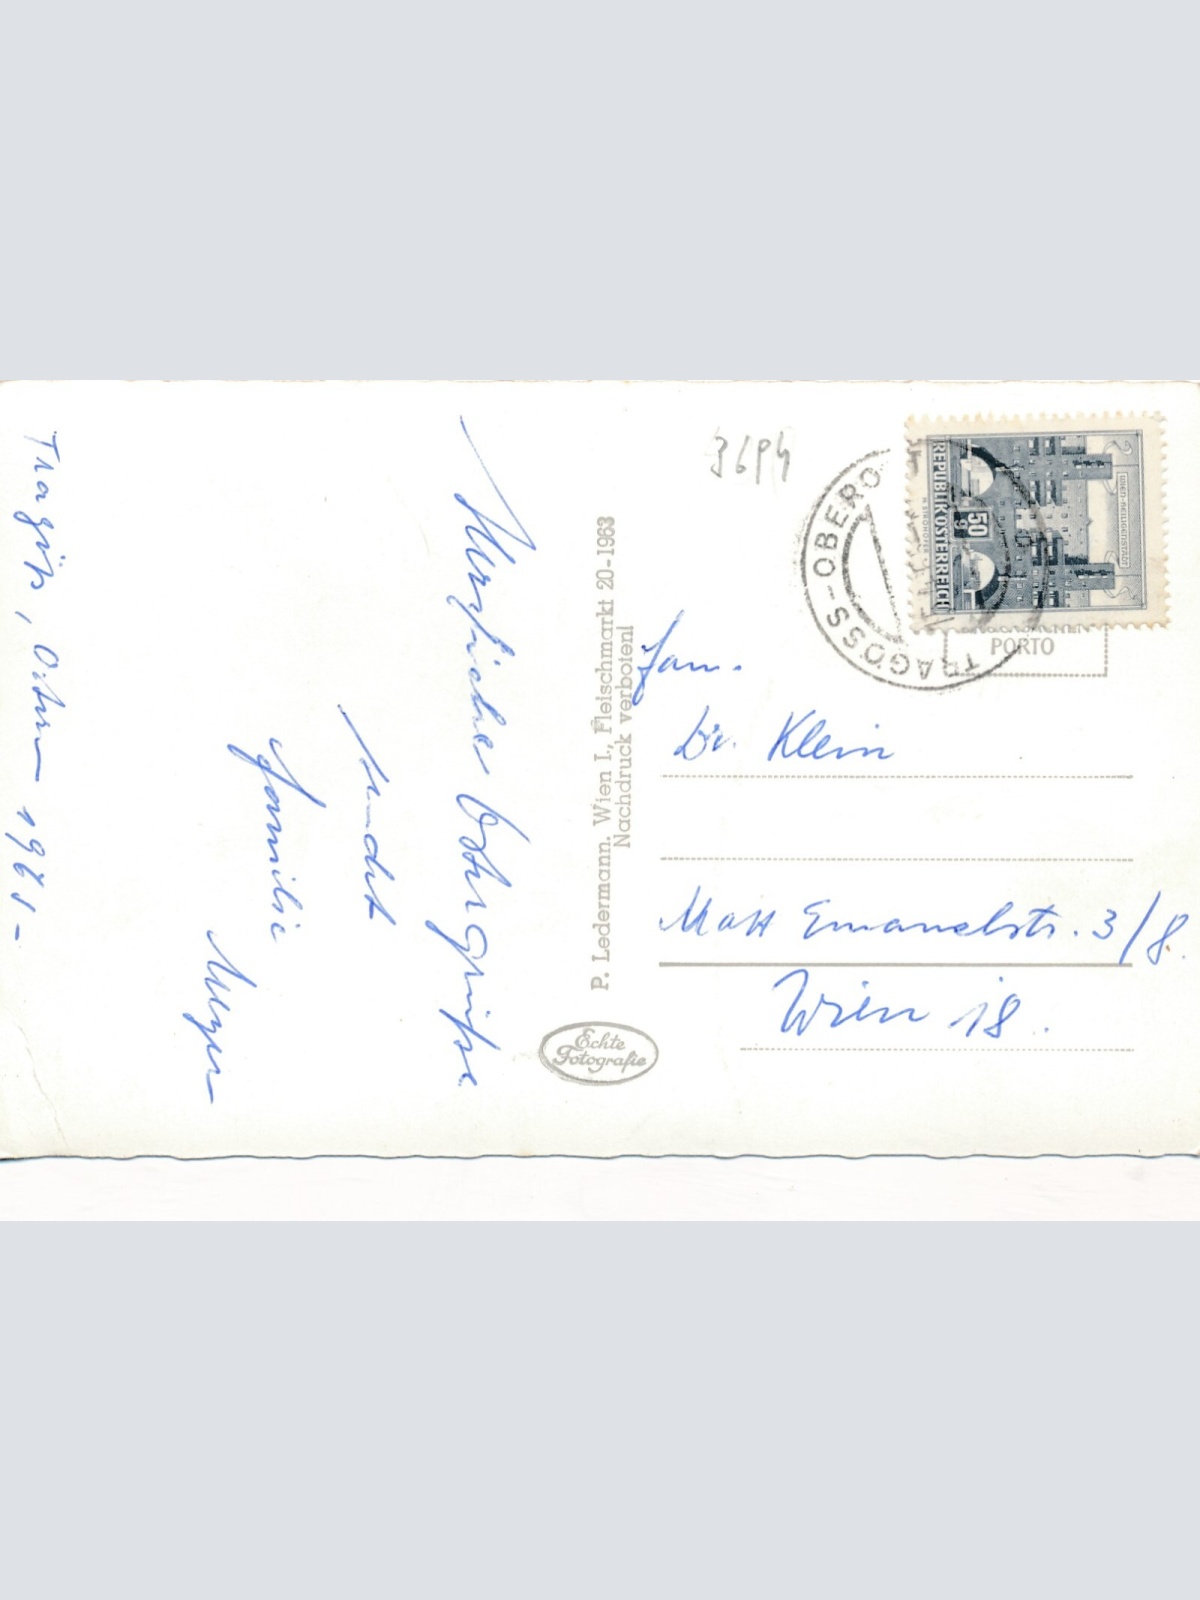 Tragöß, Ostern 1965 -
Herzliche Ostergrüße
sendet
Familie
Meyer
P. Ledermann. Wien I., Fleischmarkt 20-1963
Nachdruck verboten!
Echte
Fotografie
3694
TRAGÖSS-OBERO
REPUBLIK ÖSTERREICH
50 g
WIEN-HEILIGENSTADT
PORTO
Fam.
Dr. Klein
Emanuelstr. 3/8.
Wien 18.